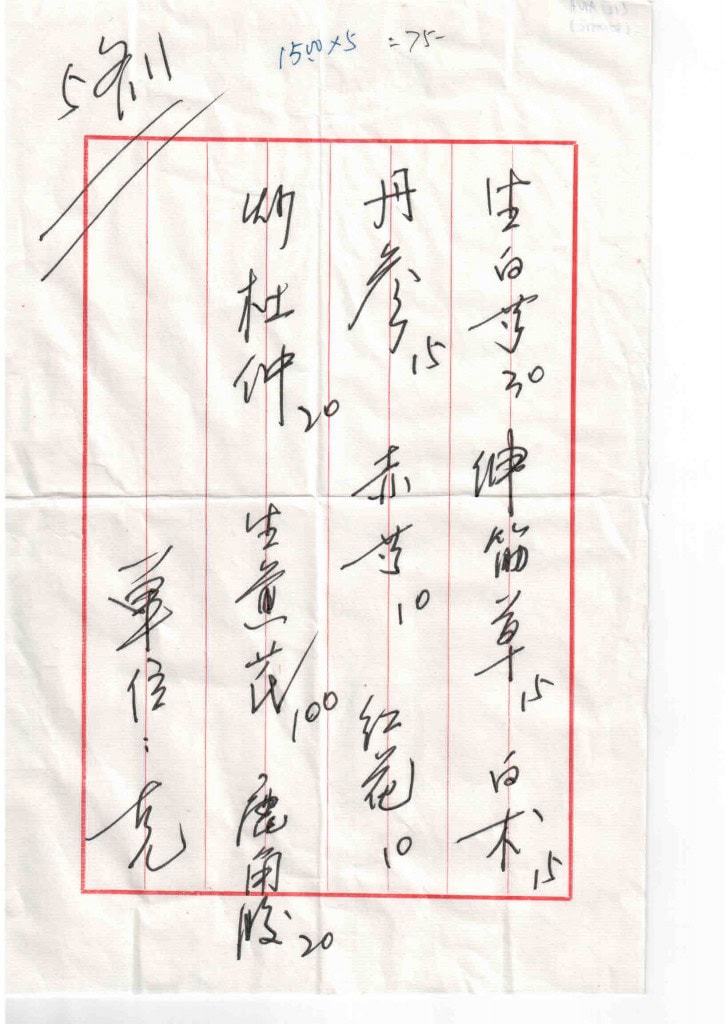 5剂
1500×5 =75-
生白芍30 伸筋草15 白术15
丹参15 赤芍10 红花10
炒杜仲20 生黄芪100 鹿角胶20
单位：克